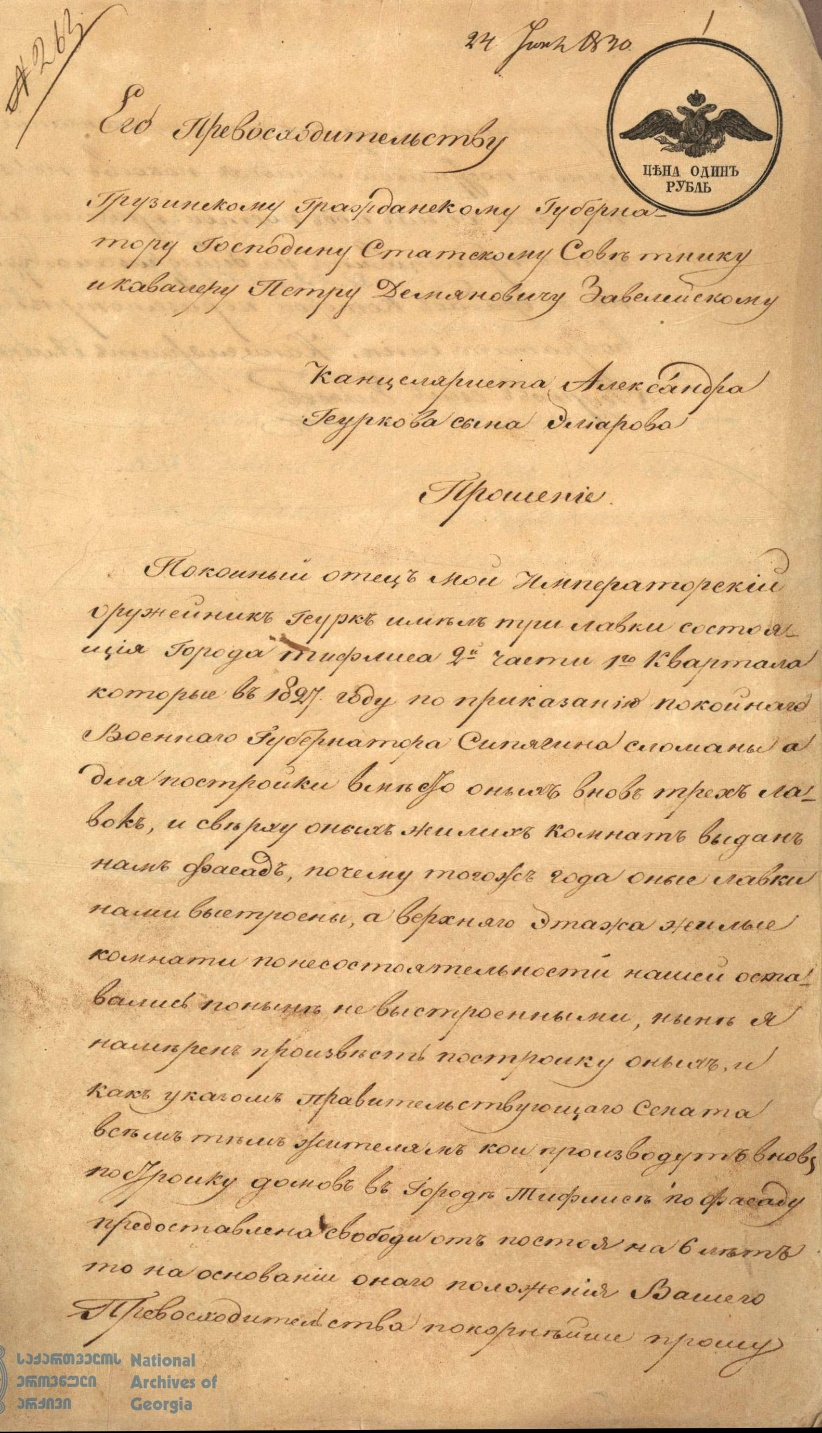 №263
24 Июня 1830.
1
ЦѢНА ОДИНЪ
РУБЛЬ
Его Превосходительству
Грузинскому Гражданскому Губерна-
тору Господину Статскому Совѣтнику
и кавалеру Петру Демяновичу Завелейскому
Канцеляриста Александра
Геуркова сына Эліарова
Прошеніе.
Покоиный отецъ мой Императорскій
оружейникъ Геуркъ имѣлъ три лавки состоя-
щія Города тифлиса 2й части 1го Квартала
которые въ 1827. году по приказанію покойнаго
Военнаго Губернатора Сипягина сломаны а
для постройки вмѣсто оныхъ вновь трехъ ла-
вокъ, и сверху оныхъ жилихъ комнатъ выданъ
намъ фасадъ, почему тогожъ года оные лавки
нами выстроены, а верхняго этажа жилые
комнати понесостоятельности нашей оста-
вались понынѣ не выстроенными, нынѣ я
намѣренъ произвѣсть постройку оныхъ, и
какъ указомъ правительствующаго сената
всѣмъ тѣмъ жителямъ кои производутъ вновь
постройку домовъ въ Городѣ Тифлисѣ по фасаду
предоставлена свободи отъ постоя на 6 лѣтъ
то на основаніи онаго положенія Вашего
Превосходительства покорнѣйше прошу
საქართველოს National
ეროვნული Archives of
არქივი Georgia